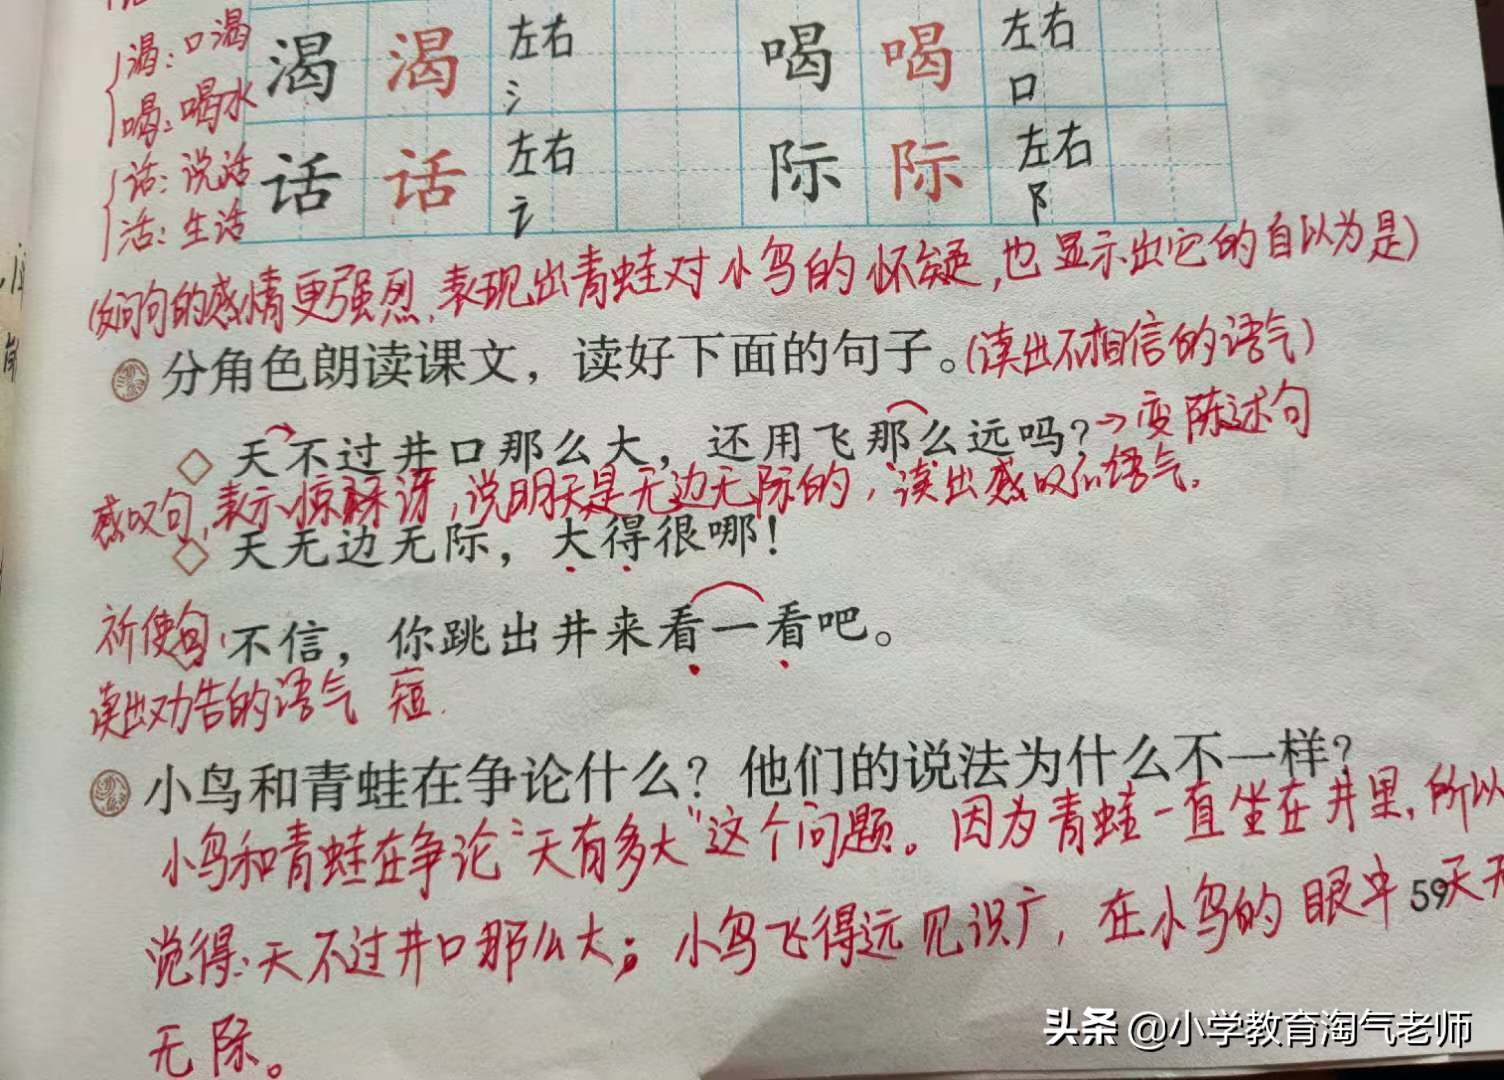 渴：口渴 渴 渴 左右 喝 喝 左右
喝：喝水 氵 口
话：说话 话 话 左右 际 际 左右
活：生活 讠 阝
(反问句的感情更强烈,表现出青蛙对小鸟的怀疑,也显示出它的自以为是)
分角色朗读课文，读好下面的句子。(读出不相信的语气)
◇ 天不过井口那么大，还用飞那么远吗？→变陈述句
感叹句,表示惊讶,说明天是无边无际的,读出感叹的语气。
◇ 天无边无际，大得很哪！
祈使句, 不信，你跳出井来看一看吧。
读出劝告的语气 短.
小鸟和青蛙在争论什么？他们的说法为什么不一样？
小鸟和青蛙在争论“天有多大”这个问题。因为青蛙一直坐在井里,所以
觉得:天不过井口那么大；小鸟飞得远见识广,在小鸟的眼中天无
59
无际。
头条 @小学教育淘气老师